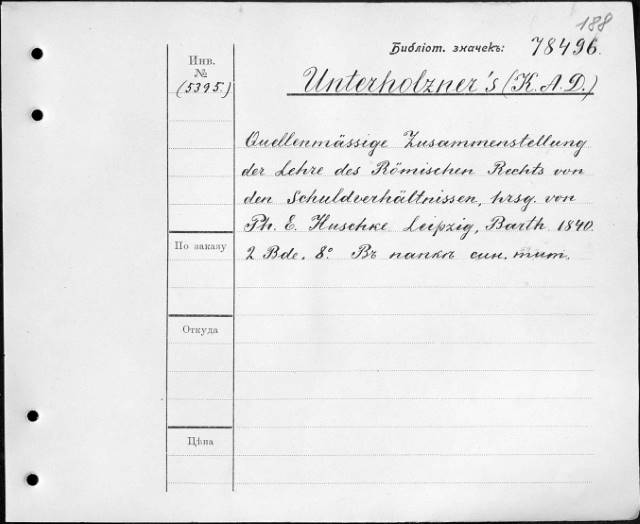 188
Библіот. значекъ: 78496.
Инв.
№
(5395.)
Unterholzner's (K. A. D.)
Quellenmässige Zusammenstellung
der Lehre des Römischen Rechts von
den Schuldverhältnissen, hrsg. von
Ph. E. Huschke. Leipzig, Barth. 1840.
2 Bde. 8°. Въ папкѣ син. тит.
По заказу
Откуда
Цѣна